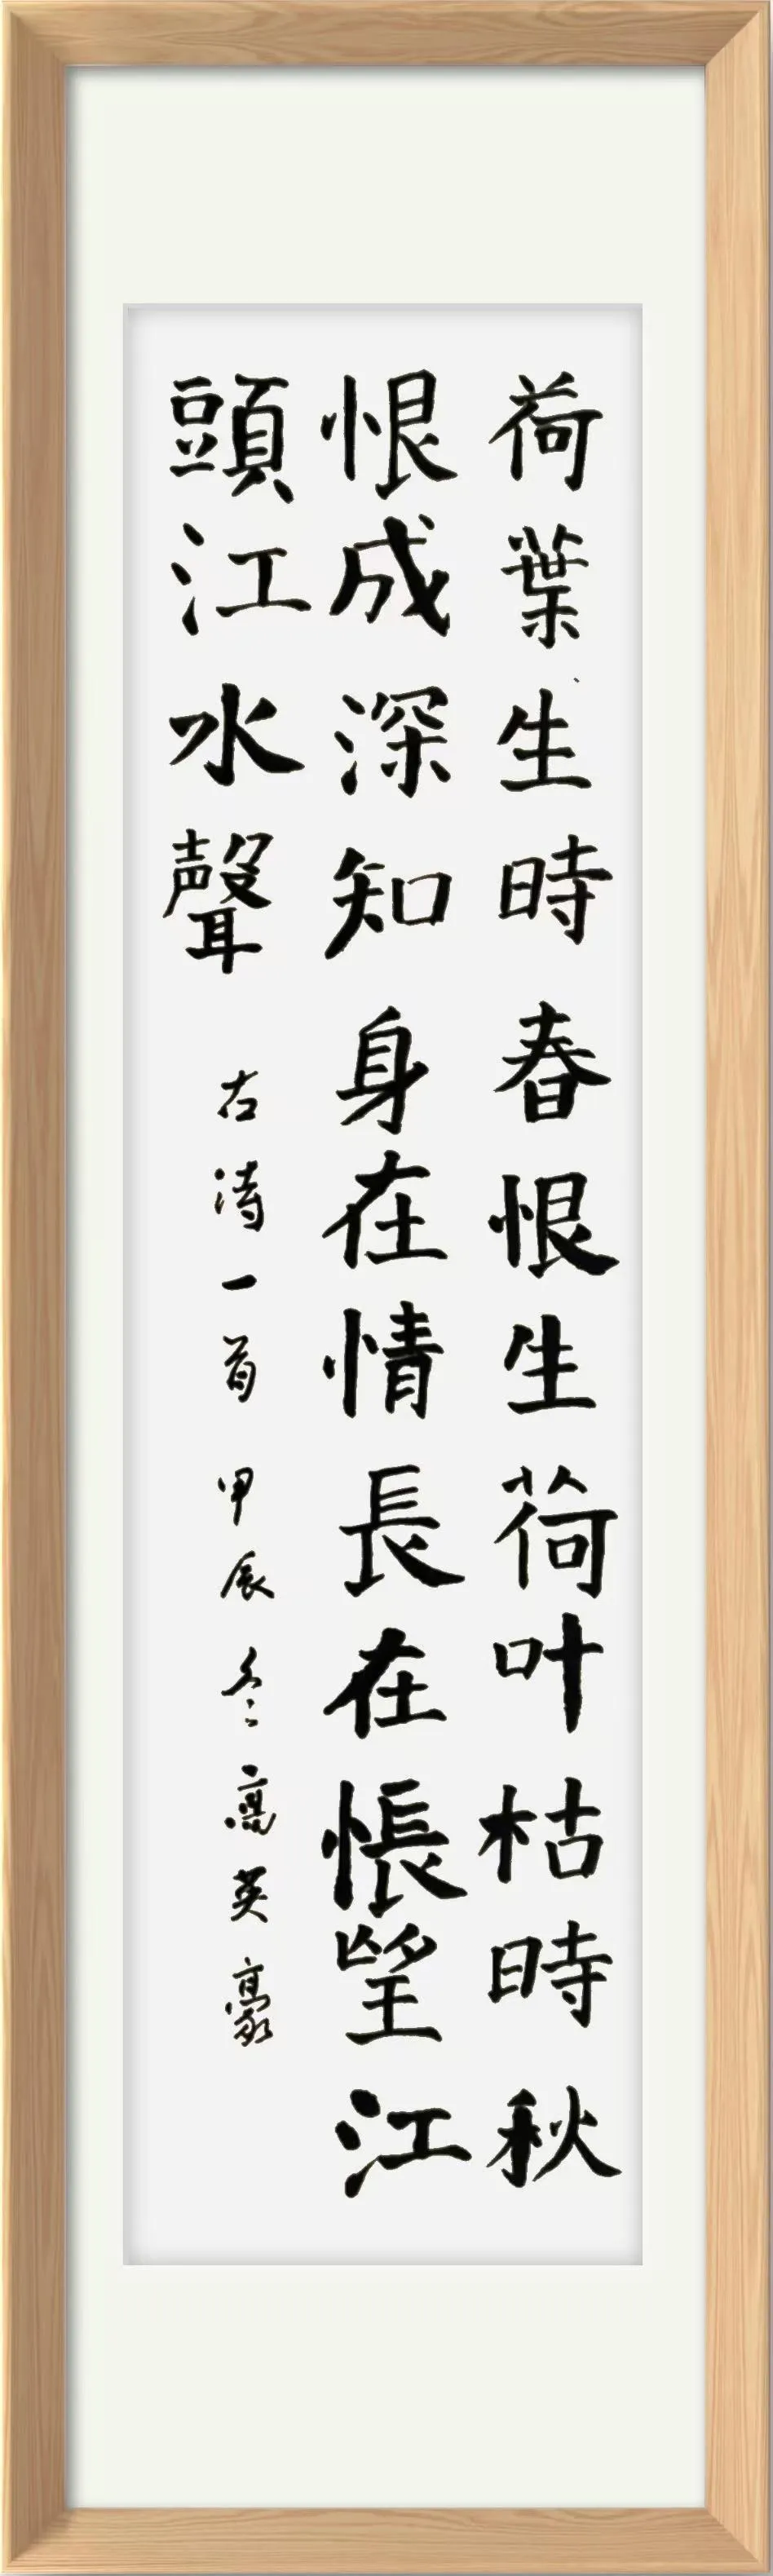 荷葉生時春恨生荷叶枯時秋
恨成深知身在情長在悵望江
頭江水聲
古诗一首 甲辰冬高英豪